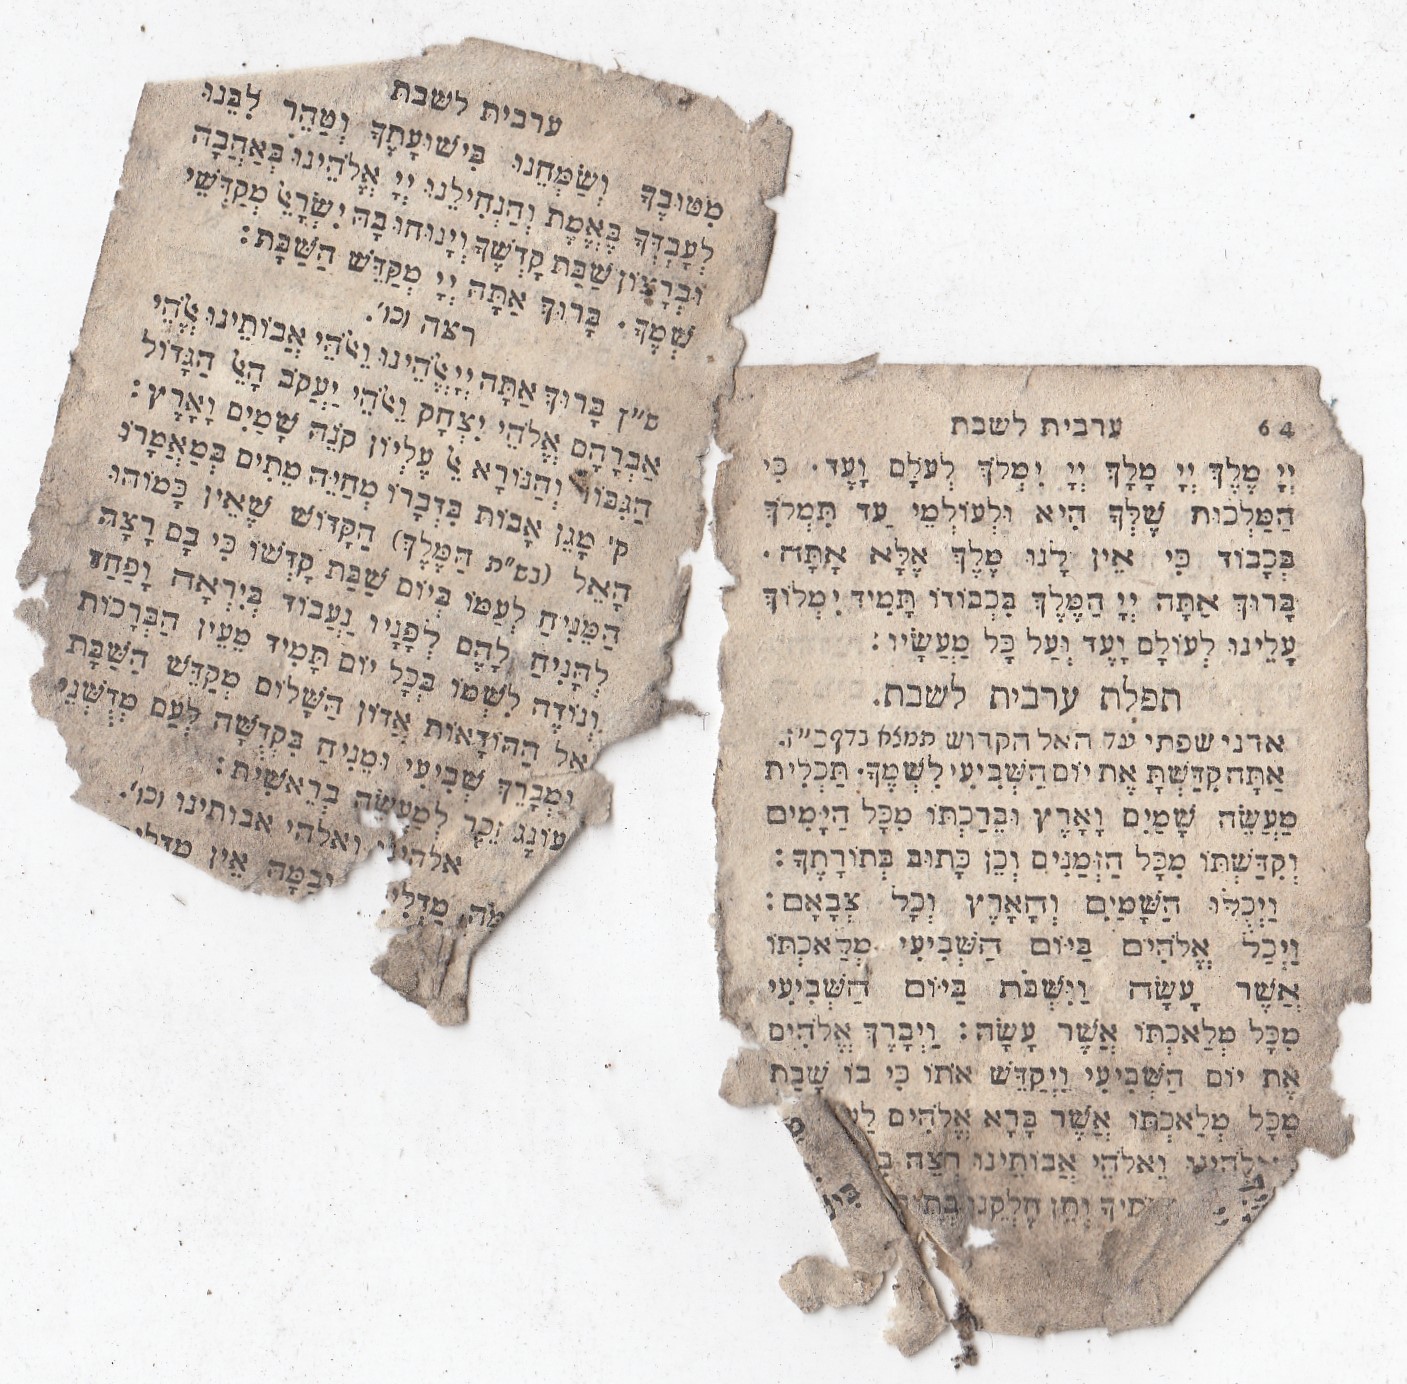 64
ערבית לשבת
יְיָ מֶלֶךְ יְיָ מָלָךְ יְיָ יִמְלֹךְ לְעֹלָם וָעֶד. כִּי
הַמַּלְכוּת שֶׁלְּךָ הִיא וּלְעוֹלְמֵי עַד תִּמְלֹךְ
בְּכָבוֹד כִּי אֵין לָנוּ מֶלֶךְ אֶלָּא אָתָּה.
בָּרוּךְ אַתָּה יְיָ הַמֶּלֶךְ בִּכְבוֹדוֹ תָּמִיד יִמְלוֹךְ
עָלֵינוּ לְעוֹלָם וָעֶד וְעַל כָּל מַעֲשָׂיו:
תפלת ערבית לשבת.
אדני שפתי עד האל הקדוש תמצא בדף כ״ז.
אַתָּה קִדַּשְׁתָּ אֶת יוֹם הַשְּׁבִיעִי לִשְׁמֶךָ. תַּכְלִית
מַעֲשֵׂה שָׁמַיִם וָאָרֶץ וּבֵרַכְתּוֹ מִכָּל הַיָּמִים
וְקִדַּשְׁתּוֹ מִכָּל הַזְּמַנִּים וְכֵן כָּתוּב בְּתוֹרָתֶךָ:
וַיְכֻלּוּ הַשָּׁמַיִם וְהָאָרֶץ וְכָל צְבָאָם:
וַיְכַל אֱלֹהִים בַּיּוֹם הַשְּׁבִיעִי מְלַאכְתּוֹ
אֲשֶׁר עָשָׂה וַיִּשְׁבֹּת בַּיּוֹם הַשְּׁבִיעִי
מִכָּל מְלַאכְתּוֹ אֲשֶׁר עָשָׂה: וַיְבָרֶךְ אֱלֹהִים
אֶת יוֹם הַשְּׁבִיעִי וַיְקַדֵּשׁ אֹתוֹ כִּי בוֹ שָׁבַת
מִכָּל מְלַאכְתּוֹ אֲשֶׁר בָּרָא אֱלֹהִים
וֵאלֹהֵי אֲבוֹתֵינוּ רְצֵה
וְתֵן חֶלְקֵנוּ
ערבית לשבת
מִטּוּבֶךָ וְשַׂמְּחֵנוּ בִּישׁוּעָתֶךָ וְטַהֵר לִבֵּנוּ
לְעָבְדְּךָ בֶּאֱמֶת וְהַנְחִילֵנוּ יְיָ אֱלֹהֵינוּ בְּאַהֲבָה
וּבְרָצוֹן שַׁבַּת קָדְשֶׁךָ וְיָנוּחוּ בָהּ יִשְׂרָאֵל מְקַדְּשֵׁי
שְׁמֶךָ. בָּרוּךְ אַתָּה יְיָ מְקַדֵּשׁ הַשַּׁבָּת:
רצה וכו׳.
ס״ן בָּרוּךְ אַתָּה יְיָ אֱלֹהֵינוּ וֵאלֹהֵי אֲבוֹתֵינוּ אֱלֹהֵי
אַבְרָהָם אֱלֹהֵי יִצְחָק וֵאלֹהֵי יַעֲקֹב הָאֵל הַגָּדוֹל
הַגִּבּוֹר וְהַנּוֹרָא אֵל עֶלְיוֹן קוֹנֵה שָׁמַיִם וָאָרֶץ:
ק׳ מָגֵן אָבוֹת בִּדְבָרוֹ מְחַיֵּה מֵתִים בְּמַאֲמָרוֹ
הָאֵל (נס״ת הַמֶּלֶךְ) הַקָּדוֹשׁ שֶׁאֵין כָּמוֹהוּ
הַמֵּנִיחַ לְעַמּוֹ בְּיוֹם שַׁבַּת קָדְשׁוֹ כִּי בָם רָצָה
לְהָנִיחַ לָהֶם לְפָנָיו נַעֲבוֹד בְּיִרְאָה וָפַחַד
וְנוֹדֶה לִשְׁמוֹ בְּכָל יוֹם תָּמִיד מֵעֵין הַבְּרָכוֹת
אֵל הַהוֹדָאוֹת אֲדוֹן הַשָּׁלוֹם מְקַדֵּשׁ הַשַּׁבָּת
וּמְבָרֵךְ שְׁבִיעִי וּמֵנִיחַ בִּקְדֻשָּׁה לְעַם מְדֻשְּׁנֵי
עוֹנֶג זֵכֶר לְמַעֲשֵׂה בְרֵאשִׁית:
אלהינו ואלהי אבותינו וכו׳.
וּבַמָּה אֵין